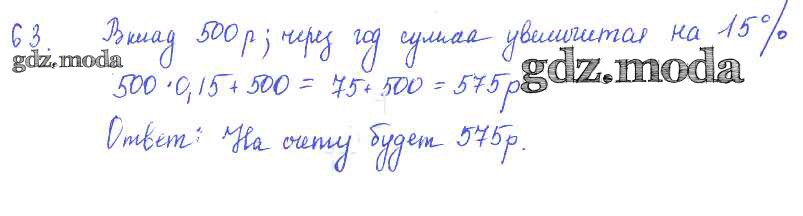 63. Вклад 500р; через год сумма увеличится на 15%
gdz.moda
500·0,15+500 = 75+500 = 575р
gdz.moda
Ответ: На счету будет 575р.